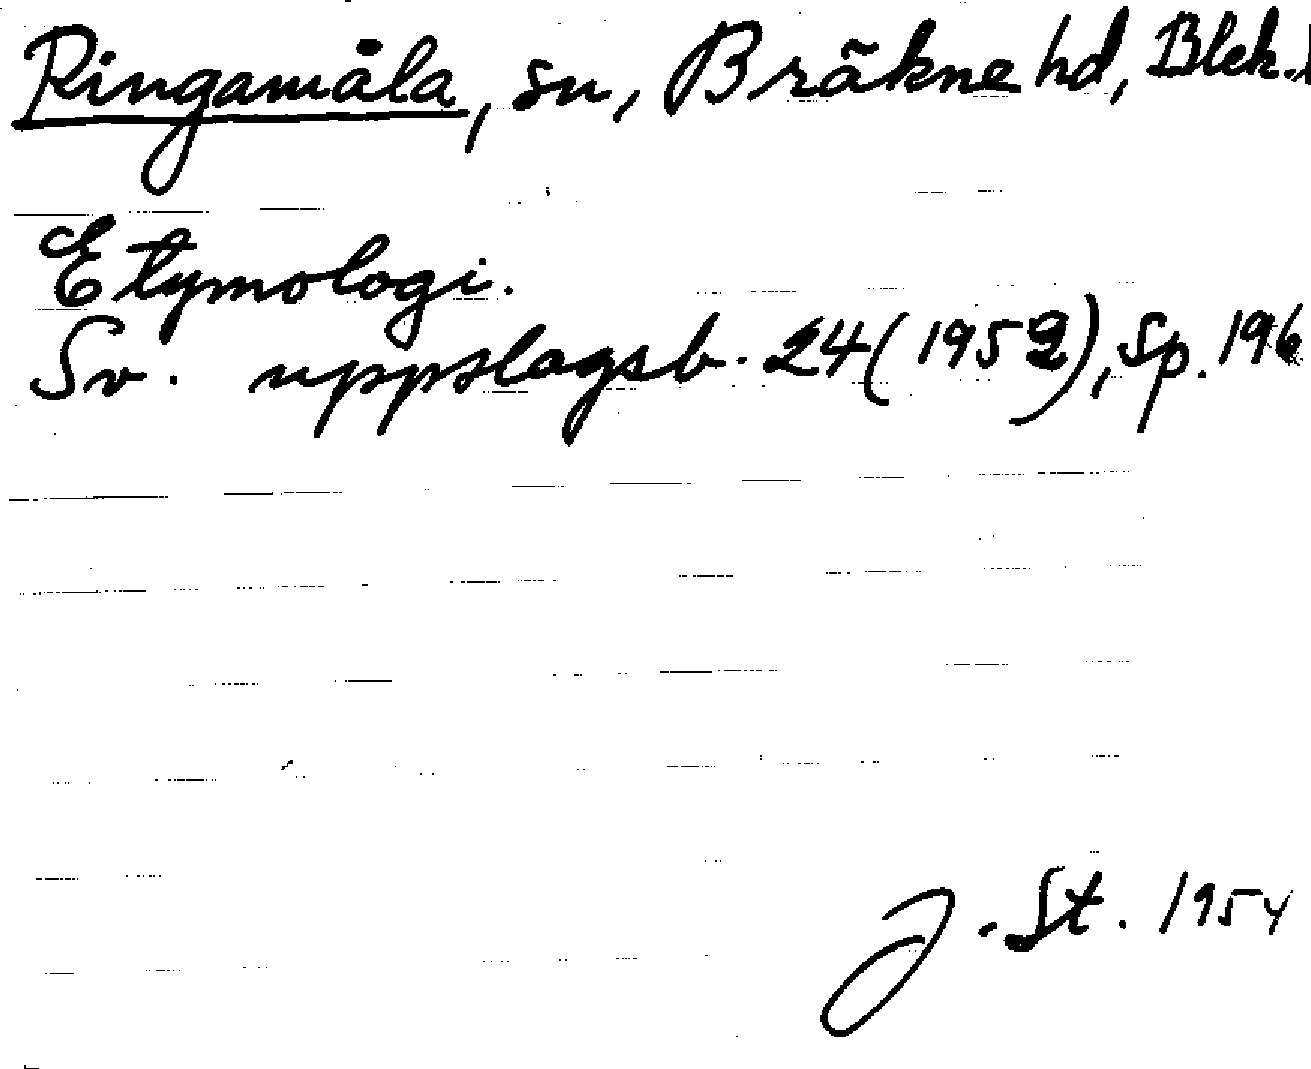 Ringamåla, sn, Bräkne hd, Blek.
Etymologi.
Sv. uppslagsb. 24 (1952), Sp. 196
J. St. 1954